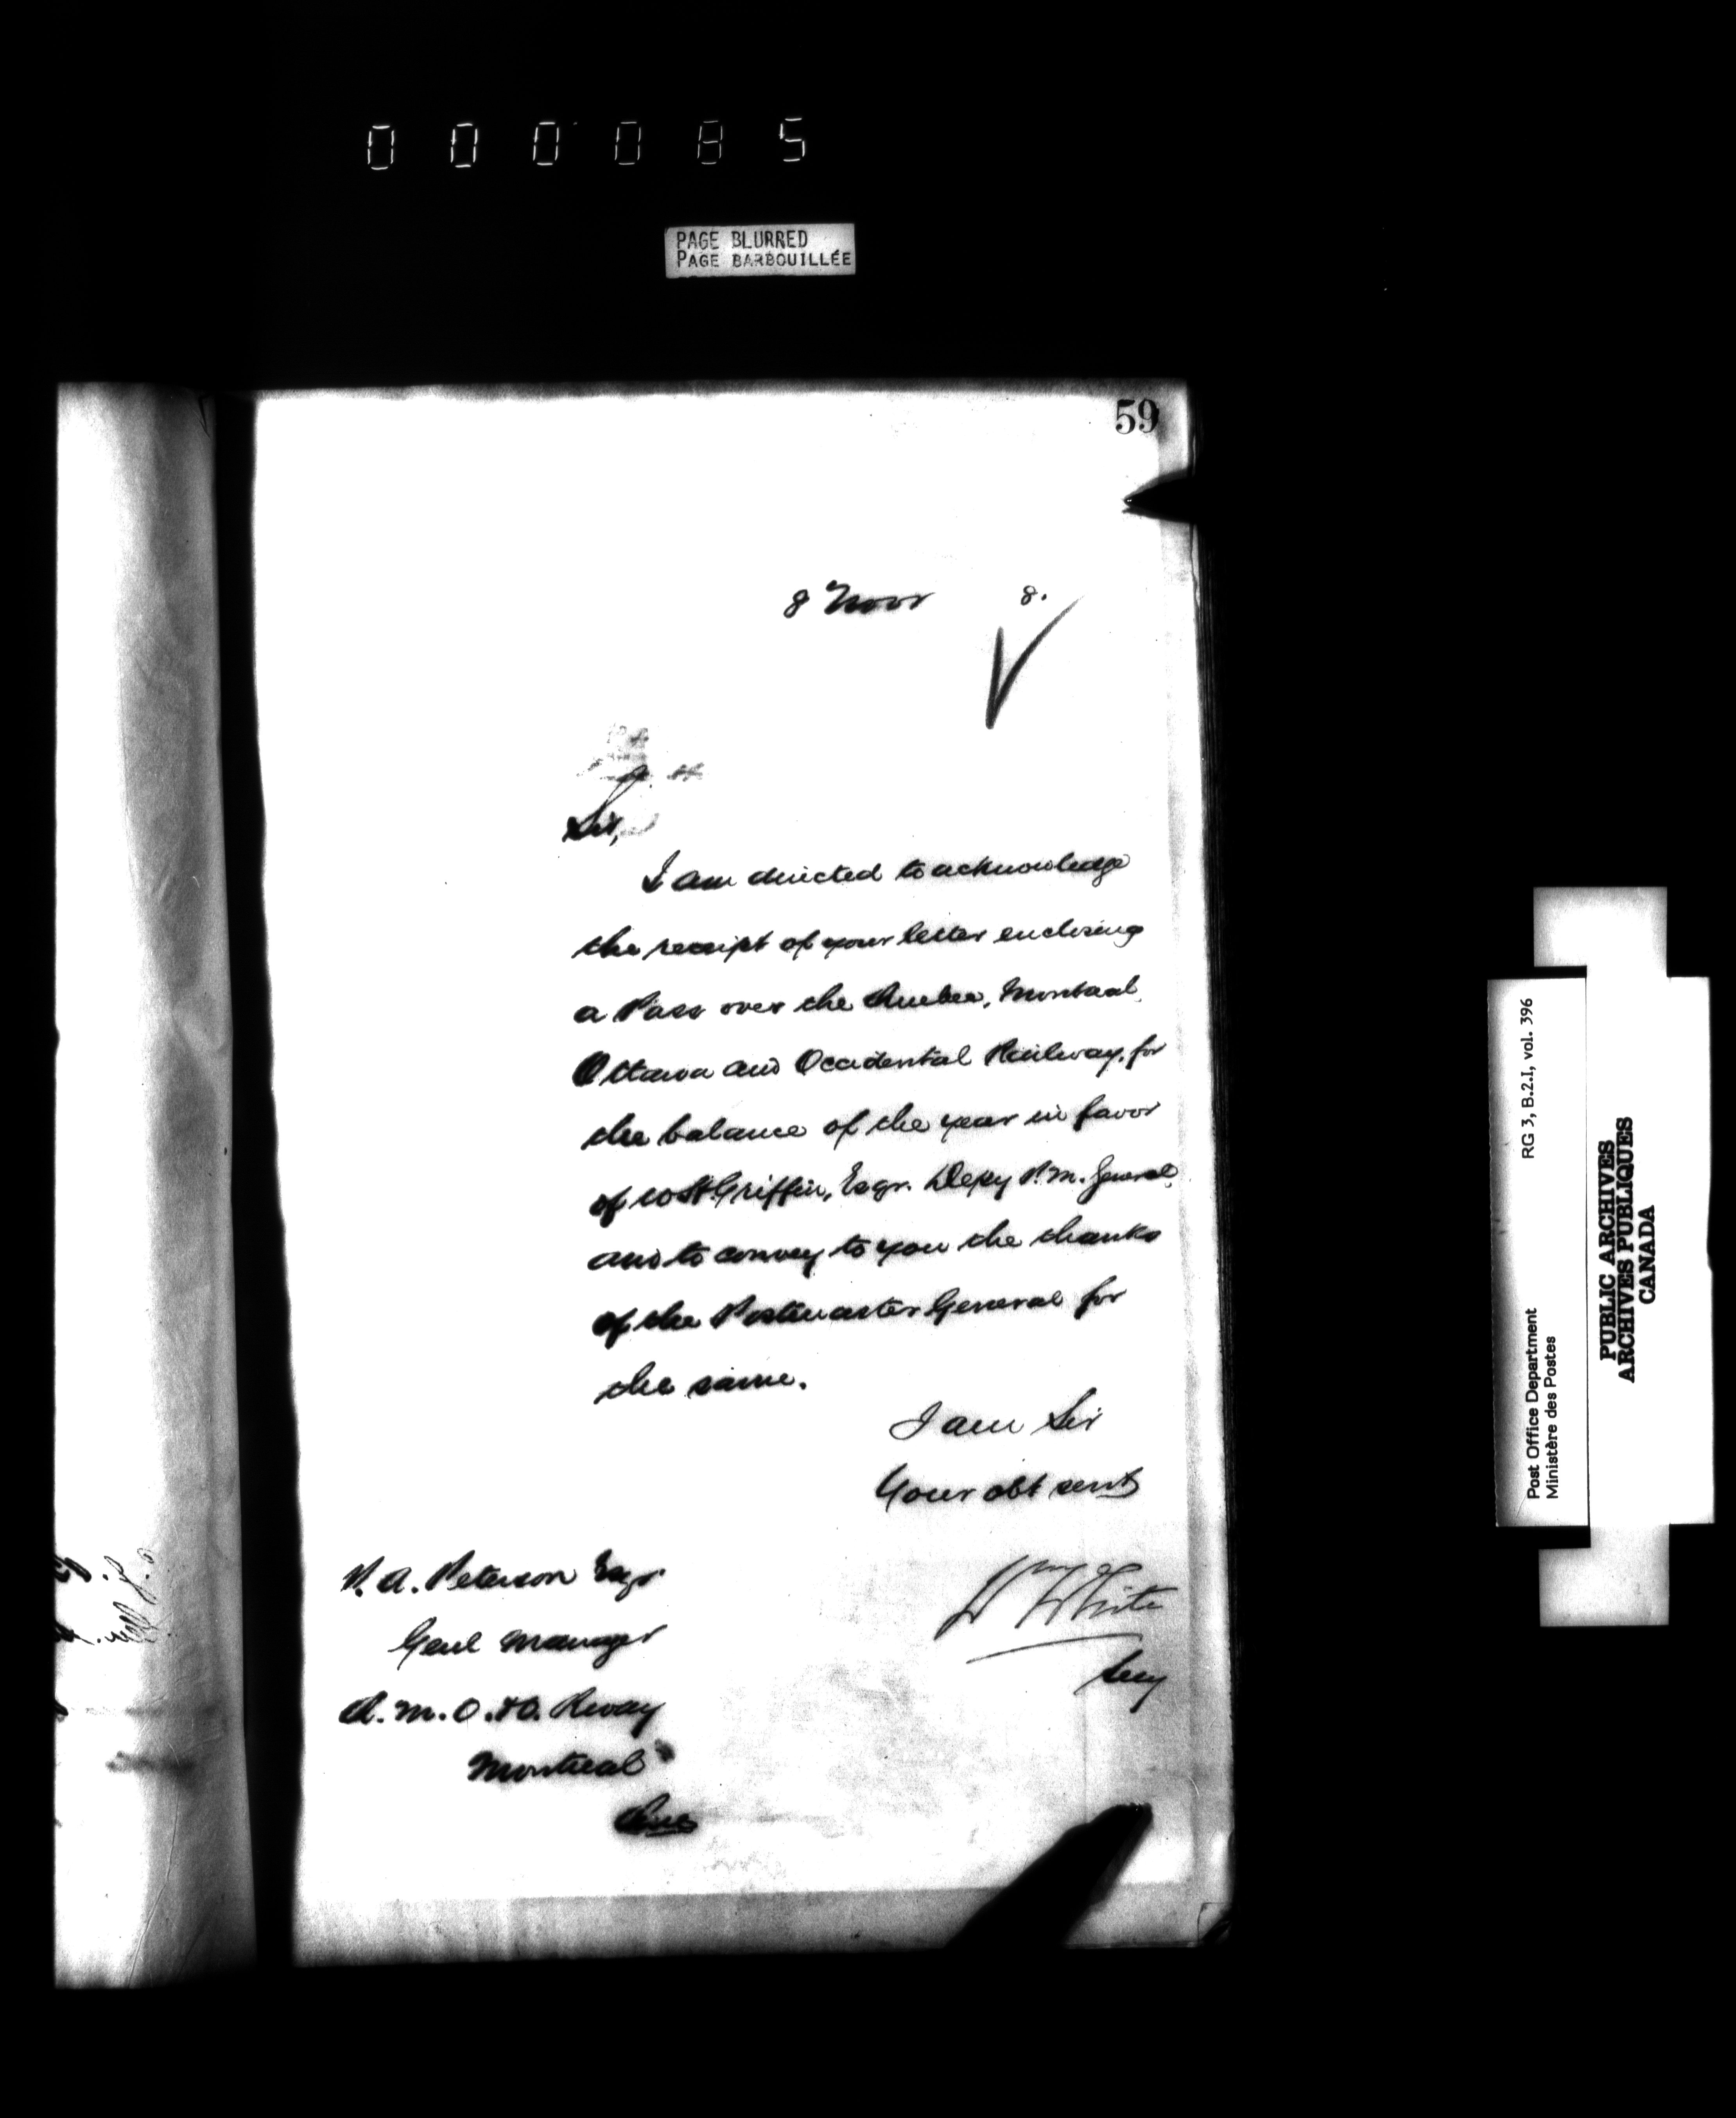 000085
PAGE BLURRED
PAGE BARBOUILLÉE
59
8 Novr 8.
Sir,
I am directed to acknowledge
the receipt of your letter enclosing
a Pass over the Quebec, Montreal
Ottawa and Occidental Railway, for
the balance of the year in favor
of W H Griffin, Esqr. Depy P.M. General,
and to convey to you the thanks
of the Postmaster General for
the same.
I am Sir
Your obt servt
Wm White
Secy
P. A. Peterson Esqr
Genl Manager
Q. M. O. & O. Rway
Montreal
Que
RG 3, B.2.I, vol. 396
Post Office Department
Ministère des Postes
PUBLIC ARCHIVES
ARCHIVES PUBLIQUES
CANADA